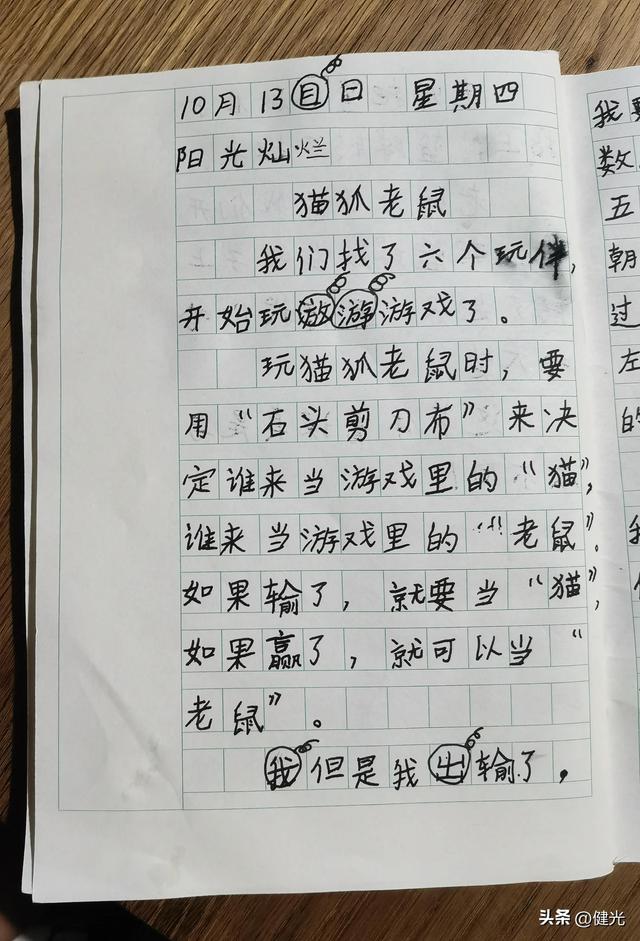 10月13目日 星期四
阳光灿烂
猫狐老鼠
我们找了六个玩伴，
开始玩放游游戏了。
玩猫狐老鼠时，要
用“石头剪刀布”来决
定谁来当游戏里的“猫”，
谁来当游戏里的“老鼠”。
如果输了，就要当“猫”，
如果赢了，就可以当“
老鼠”。
我但是我出输了，
我
数
五
朝
过
左
的
头条 @健光